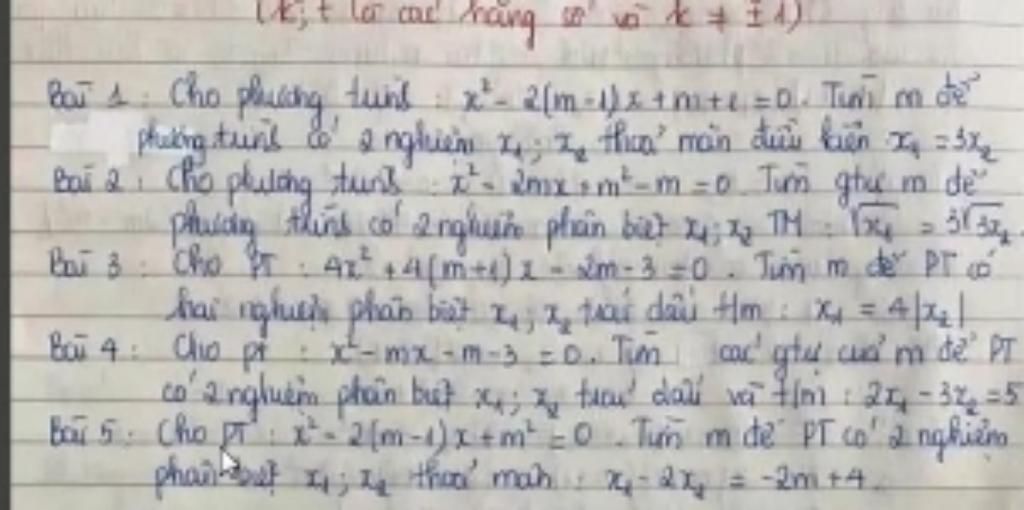 (k; t là các hằng số và k ≠ ±1)
Bài 1: Cho phương trình: x² - 2(m-1)x + m+1 = 0. Tìm m để
phương trình có 2 nghiệm x₁; x₂ thoả mãn điều kiện x₁ = 3x₂
Bài 2: Cho phương trình: x² - 2mx + m² - m = 0. Tìm gtrị m để
phương trình có 2 nghiệm phân biệt x₁; x₂ TM: √x₁ = 3√3x₂.
Bài 3: Cho PT: 4x² + 4(m+1)x - 2m - 3 = 0. Tìm m để PT có
hai nghiệm phân biệt x₁; x₂ trái dấu t/m: x₁ = 4|x₂|
Bài 4: Cho pt: x² - mx - m - 3 = 0. Tìm các gtrị của m để PT
có 2 nghiệm phân biệt x₁; x₂ trái dấu và t/m: 2x₁ - 3x₂ = 5
Bài 5: Cho PT: x² - 2(m-1)x + m² = 0. Tìm m để PT có 2 nghiệm
phân biệt x₁; x₂ thoả mãn: x₁ - 2x₂ = -2m + 4.